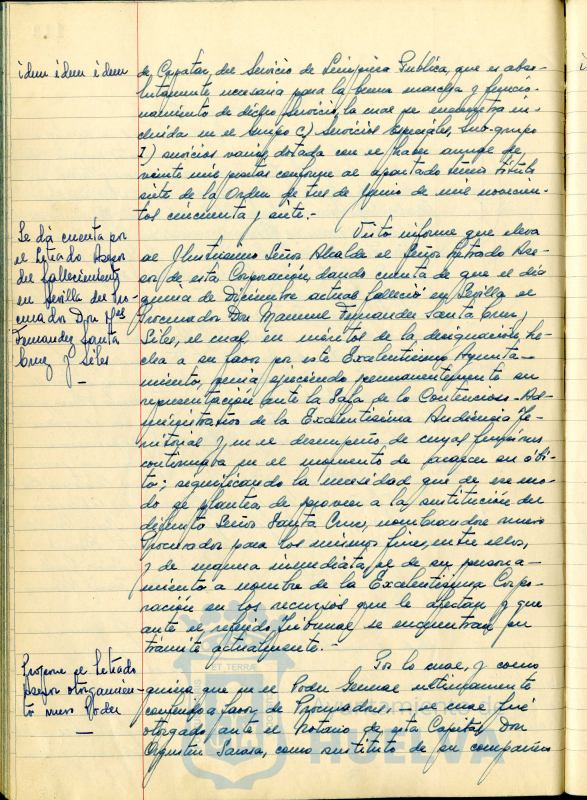 idem idem idem
de Capataz del Servicio de Limpieza Publica, que es abso-
lutamente necesaria para la buena marcha y funcio-
namiento de dicho Servicio, la cual se encuentra in-
cluida en el Grupo C) Servicios Especiales, Sub-grupo
I) servicios varios, dotada con el haber anual de
veinte mil pesetas conforme al apartado
siete de la Orden de tres de Junio de mil novecien-
tos cincuenta y siete.-
Se dá cuenta por
el Letrado Asesor
del fallecimiento
en Sevilla del Pro-
curador Don
Fernandez Santa
Cruz y Siles
Visto informe que eleva
al Ilustrisimo Señor Alcalde el Señor Letrado Ase-
sor de esta Corporación, dando cuenta de que el dia
quince de Diciembre actual falleció en Sevilla el
Procurador Don Manuel Fernandez Santa Cruz y
Siles, el cual, en méritos de la designación he-
cha a su favor por este Excelentisimo Ayunta-
miento, venia ejerciendo permanentemente su
representación ante la Sala de lo Contencioso-Ad-
ministrativo de la Excelentisima Audiencia Te-
rritorial y en el desempeño de cuyas funciones
continuaba en el momento de acaecer su óbi-
to; significando la necesidad que de ese mo-
do se plantea de proveer a la sustitución del
difunto Señor Santa Cruz, nombrandose nuevo
Procurador para los mismos fines, entre ellos,
y de manera inmediata, el de su persona-
miento a nombre de la Excelentisima Corpo-
ración en los recursos que le afectan y que
ante el referido Tribunal se encuentran en
trámite actualmente.-
Propone el Letrado
Asesor otorgamien-
to nuevo Poder
Por lo cual, y como
quiera que en el Poder General ultimamente
conferido a favor de Procuradores, el cual fué
otorgado ante el Notario de esta Capital Don
Agustin, como sustituto de su compañero
ET TERRÆ
Ayuntamiento de
HUELVA